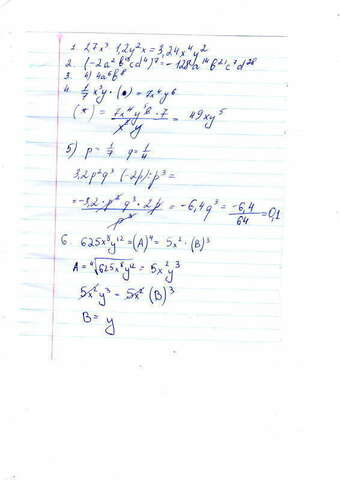 1. 2,7x³ 1,2y²x = 3,24x⁴y²
2. (-2a²b³cd⁴)⁷ = -128a¹⁴b²¹c⁷d²⁸
3. 4) 4a⁶b⁸
4. 1/7 x³y · (*) = 7x⁴y⁶
(*) = 7x⁴y⁶ · 7 / x³y = 49xy⁵
5) p = 1/7 q = 1/4
3,2p²q³ (-2p) : p³ =
= -3,2 · p² q³ · 2p / p³ = -6,4q³ = -6,4/64 = 0,1
6. 625x⁸y¹² = (A)⁴ = 5x² · (B)³
A = ⁴√625x⁸y¹² = 5x²y³
5x²y³ = 5x² (B)³
B = y